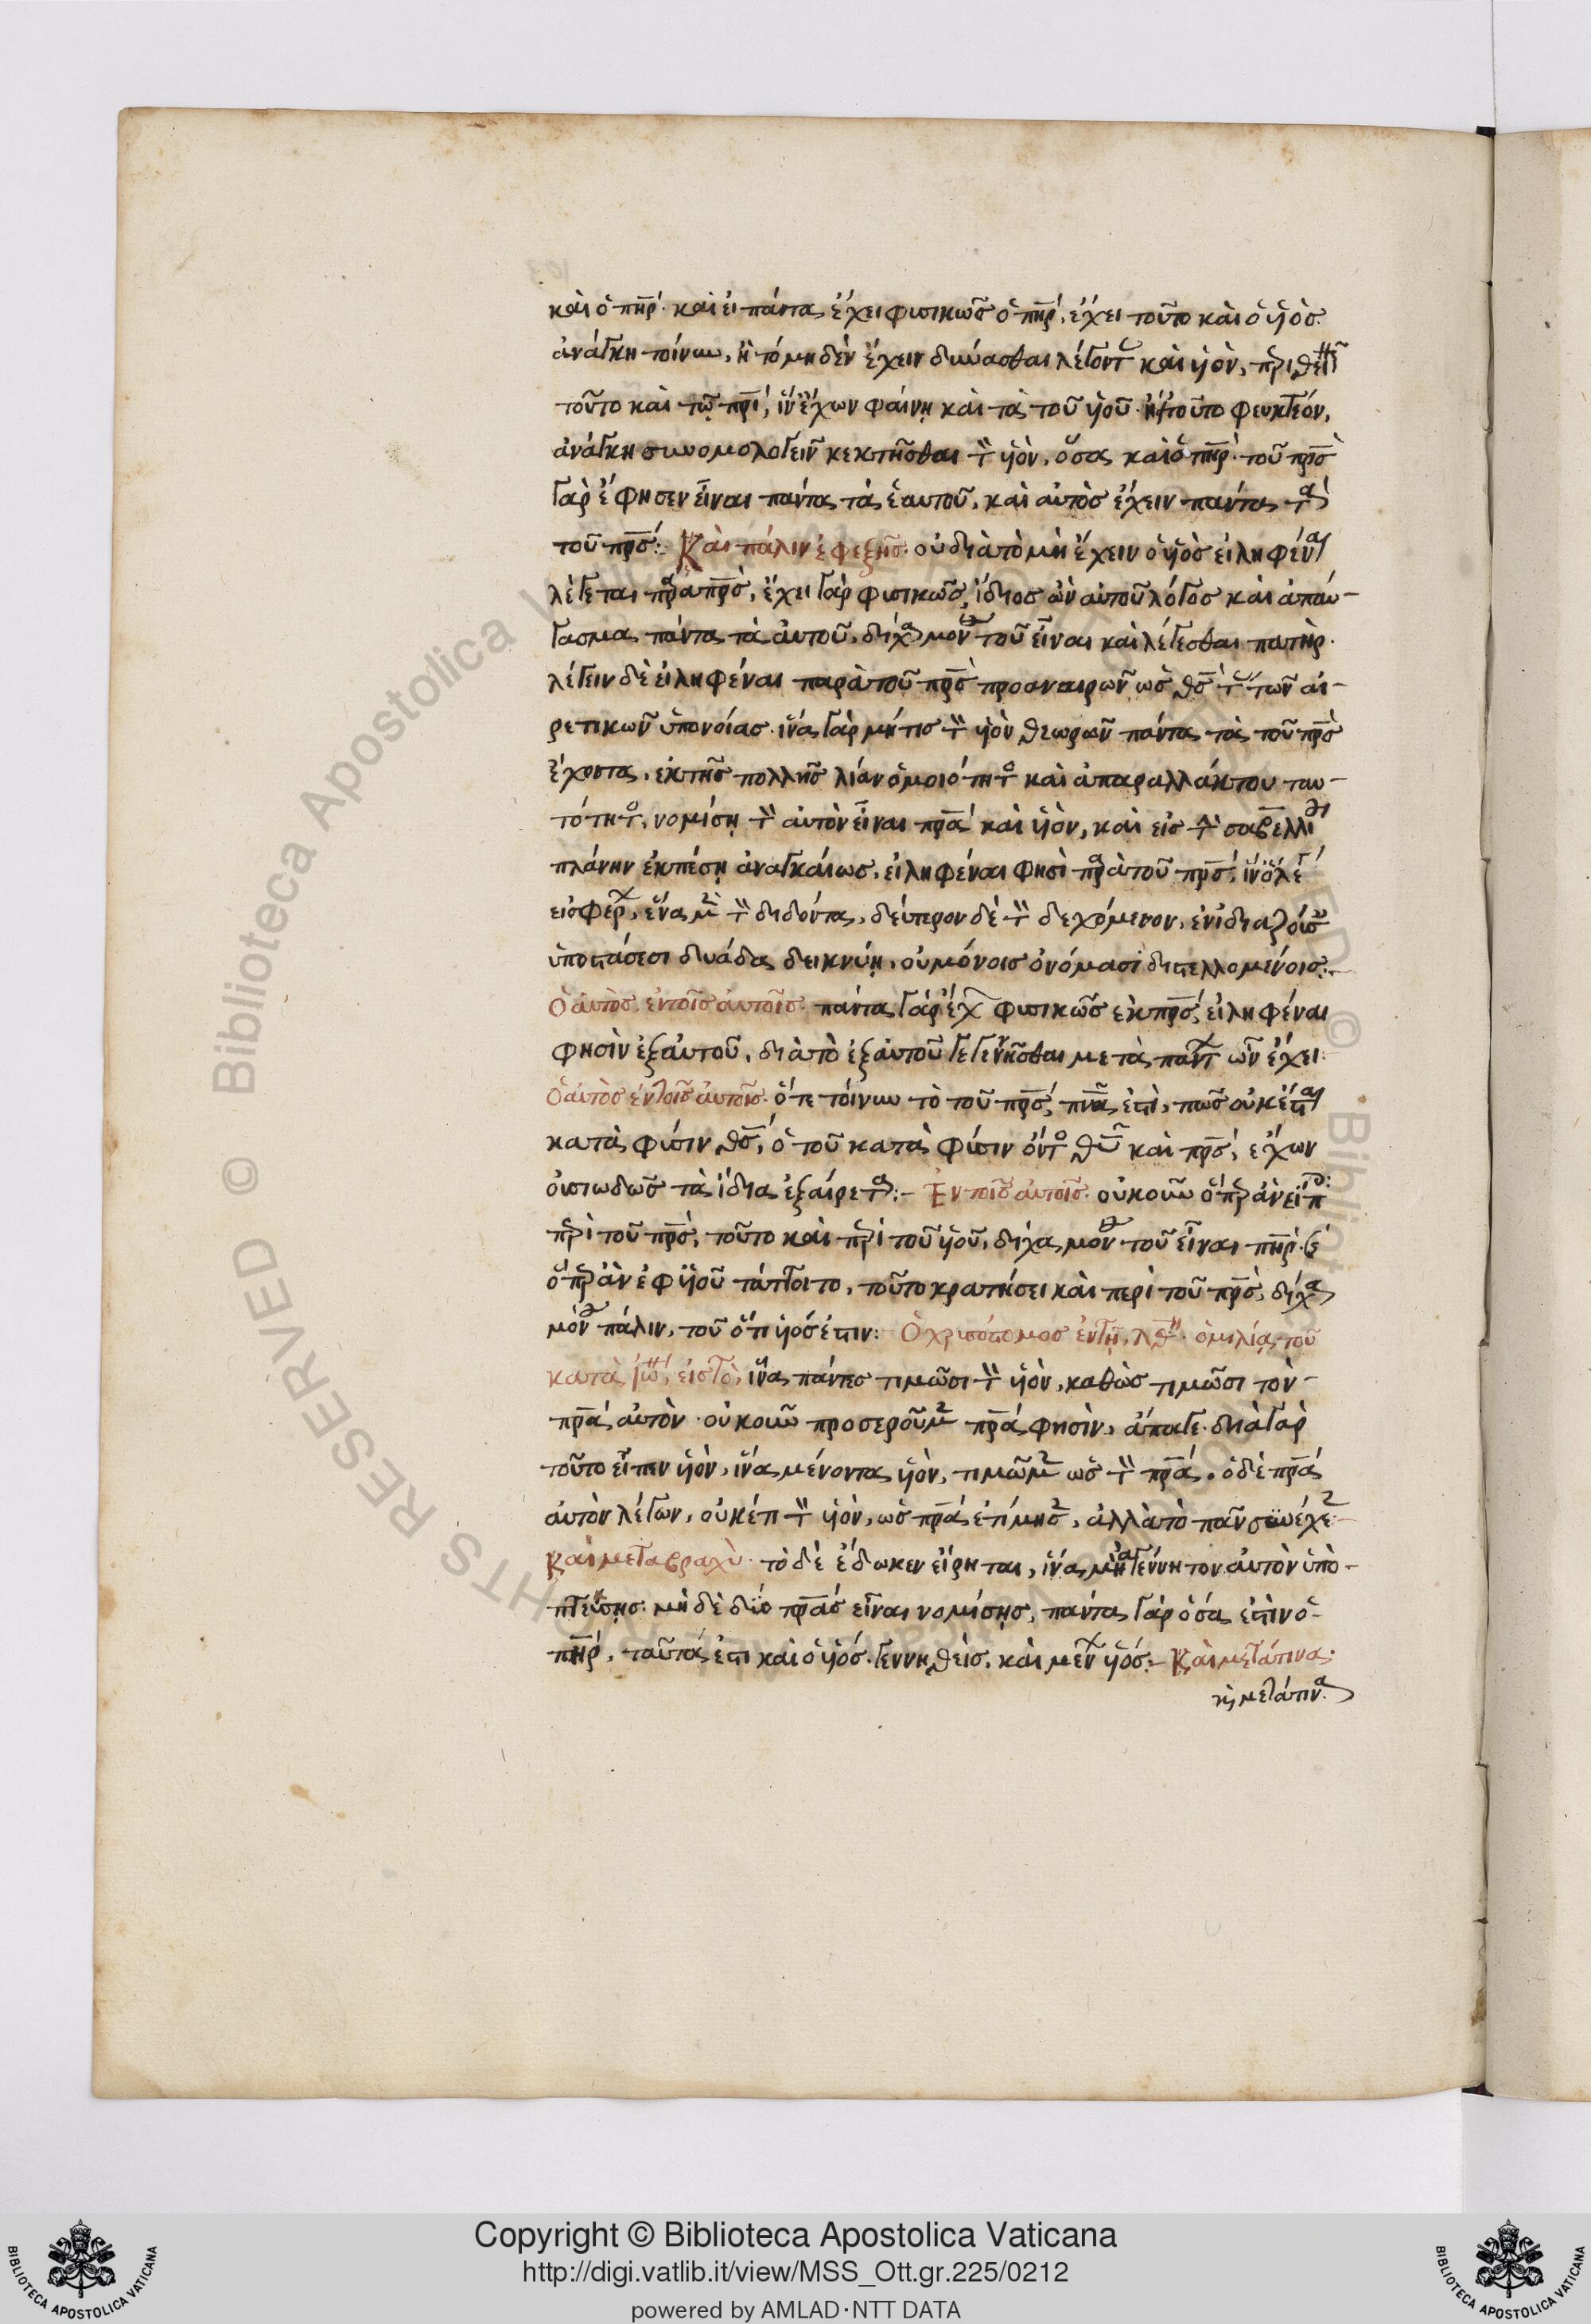 καὶ ὁ πηρ· καὶ εἰ πάντα ἔχει φυσικῶς ὁ πηρ, ἔχει τοῦτο καὶ ὁ ὑιὸς.
ἀνάγκη τοίνυν, ἢ τὸ μηδὲν ἔχειν δύνασθαι λέγοντ καὶ υἱὸν, περιθεῖ
τοῦτο καὶ τῷ πρι, ἵν ἔχων φαίνη καὶ τὰ τοῦ υἱοῦ. τοῦτο φευκτέον,
ἀνάγκη συνομολογεῖν κεκτῆσθαι τ υἱὸν, ὅσα καὶ ὁ πηρ· τοῦ πρς
γὰρ ἔφησεν εἶναι πάντα τὰ ἑαυτοῦ, καὶ αὐτὸς ἔχειν πάντα τὰ
τοῦ πρς:. Καὶ πάλιν ἐφεξῆς· οὐ διὰ τὸ μὴ ἔχειν ὁ υἱὸς εἰληφέναι
λέγεται πρὰ πρς, ἔχει γὰρ φυσικῶς, ἴδιος ὢν αὐτοῦ λόγος καὶ ἀπαύ-
γασμα, πάντα τὰ αὐτοῦ, δίχα μον τοῦ εἶναι καὶ λέγεσθαι πατήρ.
λέγειν δὲ εἰληφέναι παρὰ τοῦ πρς προαναιρῶν ὡς θς τ τῶν αἱ-
ρετικῶν ὑπονοίας. ἵνα γὰρ μή τις τ υἱὸν θεωρῶν πάντα τὰ τοῦ πρς
ἔχοντα, ἐκ τῆς πολλῆς λίαν ὁμοιότητ καὶ ἀπαραλλάκτου ταυ-
τότητ, νομίση τ αὐτὸν εἶναι πρα καὶ υἱὸν, καὶ εἰς τ σαβελλί
πλάνην ἐκπέση ἀναγκαίως, εἰληφέναι φησὶ πρὰ τοῦ πρς,
εἰσφερ, ἕνα μ τ διδόντα, δεύτερον δὲ τ δεχόμενον, ἐν ἰδιαζούσ
ὑποστάσεσι δυάδα δεικνύη, οὐ μόνοις ὀνόμασι διαστελλομένοις:-
Ὁ αὐτὸς ἐν τοῖς αὐτοῖς· πάντα γὰρ ἔχ φυσικῶς ἐκ πρς, εἰληφέναι
φησὶν ἐξ αὐτοῦ, διὰ τὸ ἐξ αὐτοῦ γεγενῆσθαι μετὰ παντ ὧν ἔχει:
Ὁ αὐτὸς ἐν τοῖς αὐτοῖς· ὅτε τοίνυν τὸ τοῦ πρς, πνα ἐστὶ, πῶς οὐκ ἔσται
κατὰ φύσιν θς, ὁ τοῦ κατὰ φύσιν ὄντ θυ καὶ πρς, ἔχων
οὐσιωδῶς τὰ ἴδια ἐξαίρετα:- Ἐν τοῖς αὐτοῖς· οὐκοῦν ὅπερ ἂν εἴπ
περὶ τοῦ πρς, τοῦτο καὶ περὶ τοῦ υἱοῦ, δίχα μον τοῦ εἶναι πηρ·
ὅπερ ἂν ἐφ υἱοῦ τάττοιτο, τοῦτο κρατήσει καὶ περὶ τοῦ πρς, δίχα
μόν πάλιν, τοῦ ὅτι υἱός ἐστιν: Ὁ χρυσόστομος ἐν τῇ λθ· ὁμιλία τοῦ
κατὰ ἰω, εἰς τὸ, ἵνα πάντες τιμῶσι τ υἱὸν, καθὼς τιμῶσι τὸν-
πρα αὐτὸν· οὐκοῦν προσεροῦμ πρα φησὶν, ἄπαγε· διὰ γὰρ
τοῦτο εἶπεν υἱὸν, ἵνα μένοντα υἱὸν, τιμῶμ ὡς τ πρα. ὁ δὲ πρα
αὐτὸν λέγων, οὐκέτι τ υἱὸν, ὡς πρα ἐτίμησ, ἀλλὰ τὸ πᾶν συνέχε
Καὶ μετα βραχὺ· τὸ δὲ ἔδωκεν εἴρηται, ἵνα μὴ ἀγέννητον αὐτὸν ὑπο-
πτεύσης· μὴ δὲ δύο πρας εἶναι νομίσης, πάντα γὰρ ὅσα ἐστὶν ὁ-
πηρ, ταῦτά ἐστι καὶ ὁ υἱός. γεννηθεὶς, καὶ μεν υἱός:- Καὶ μετάτινα·
κὶ μετάτινα